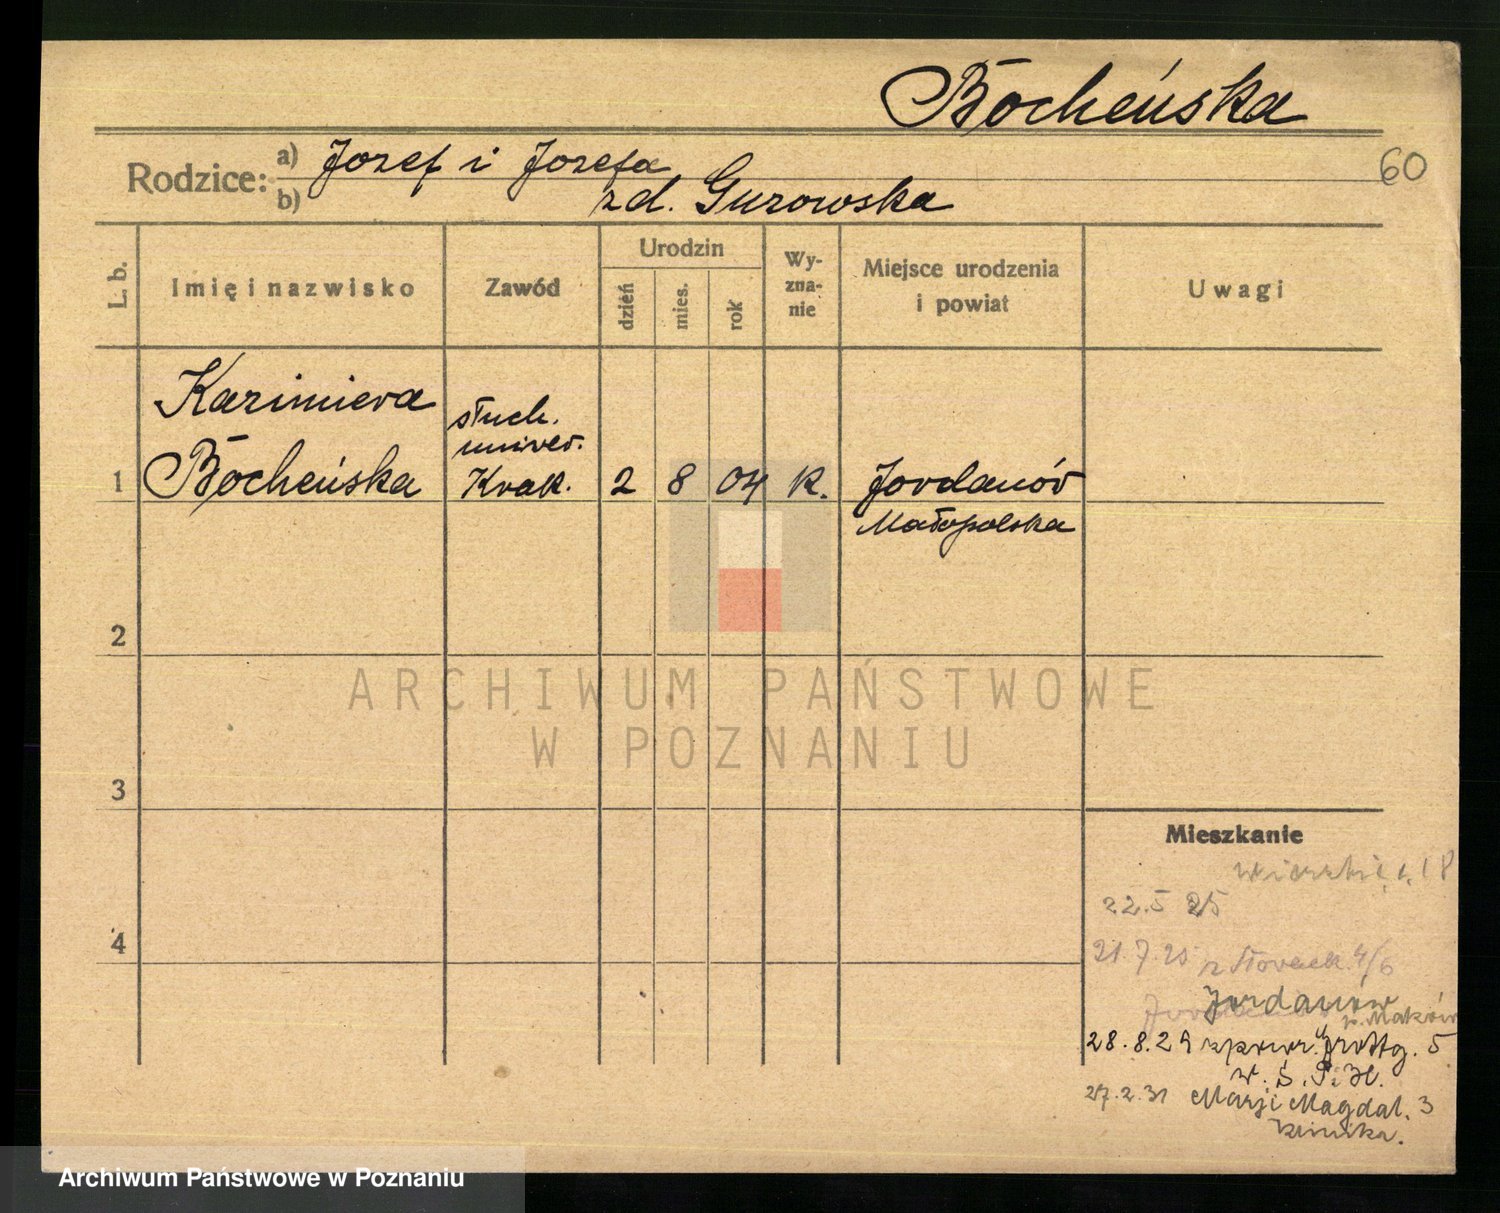 Bocheńska
60
Rodzice: a) Jozef i Jozefa
b) zd. Gurowska
L. b.
Imię i nazwisko
Zawód
Urodzin
dzień
mies.
rok
Wy-
zna-
nie
Miejsce urodzenia
i powiat
Uwagi
Kazimiera
słuch.
uniwer.
1 Bocheńska Krak. 2 8 04 k. Jordanów
Małopolska
2
ARCHIWUM PAŃSTWOWE
W POZNANIU
3
Mieszkanie
18
22.5 25
4
21.7.25 z Słowack. 4/6
Jordanów
p. Maków
28.8.29 Grottg. 5
W. S. P. H.
27.2.31 Marji Magdal. 3
klinika.
Archiwum Państwowe w Poznaniu